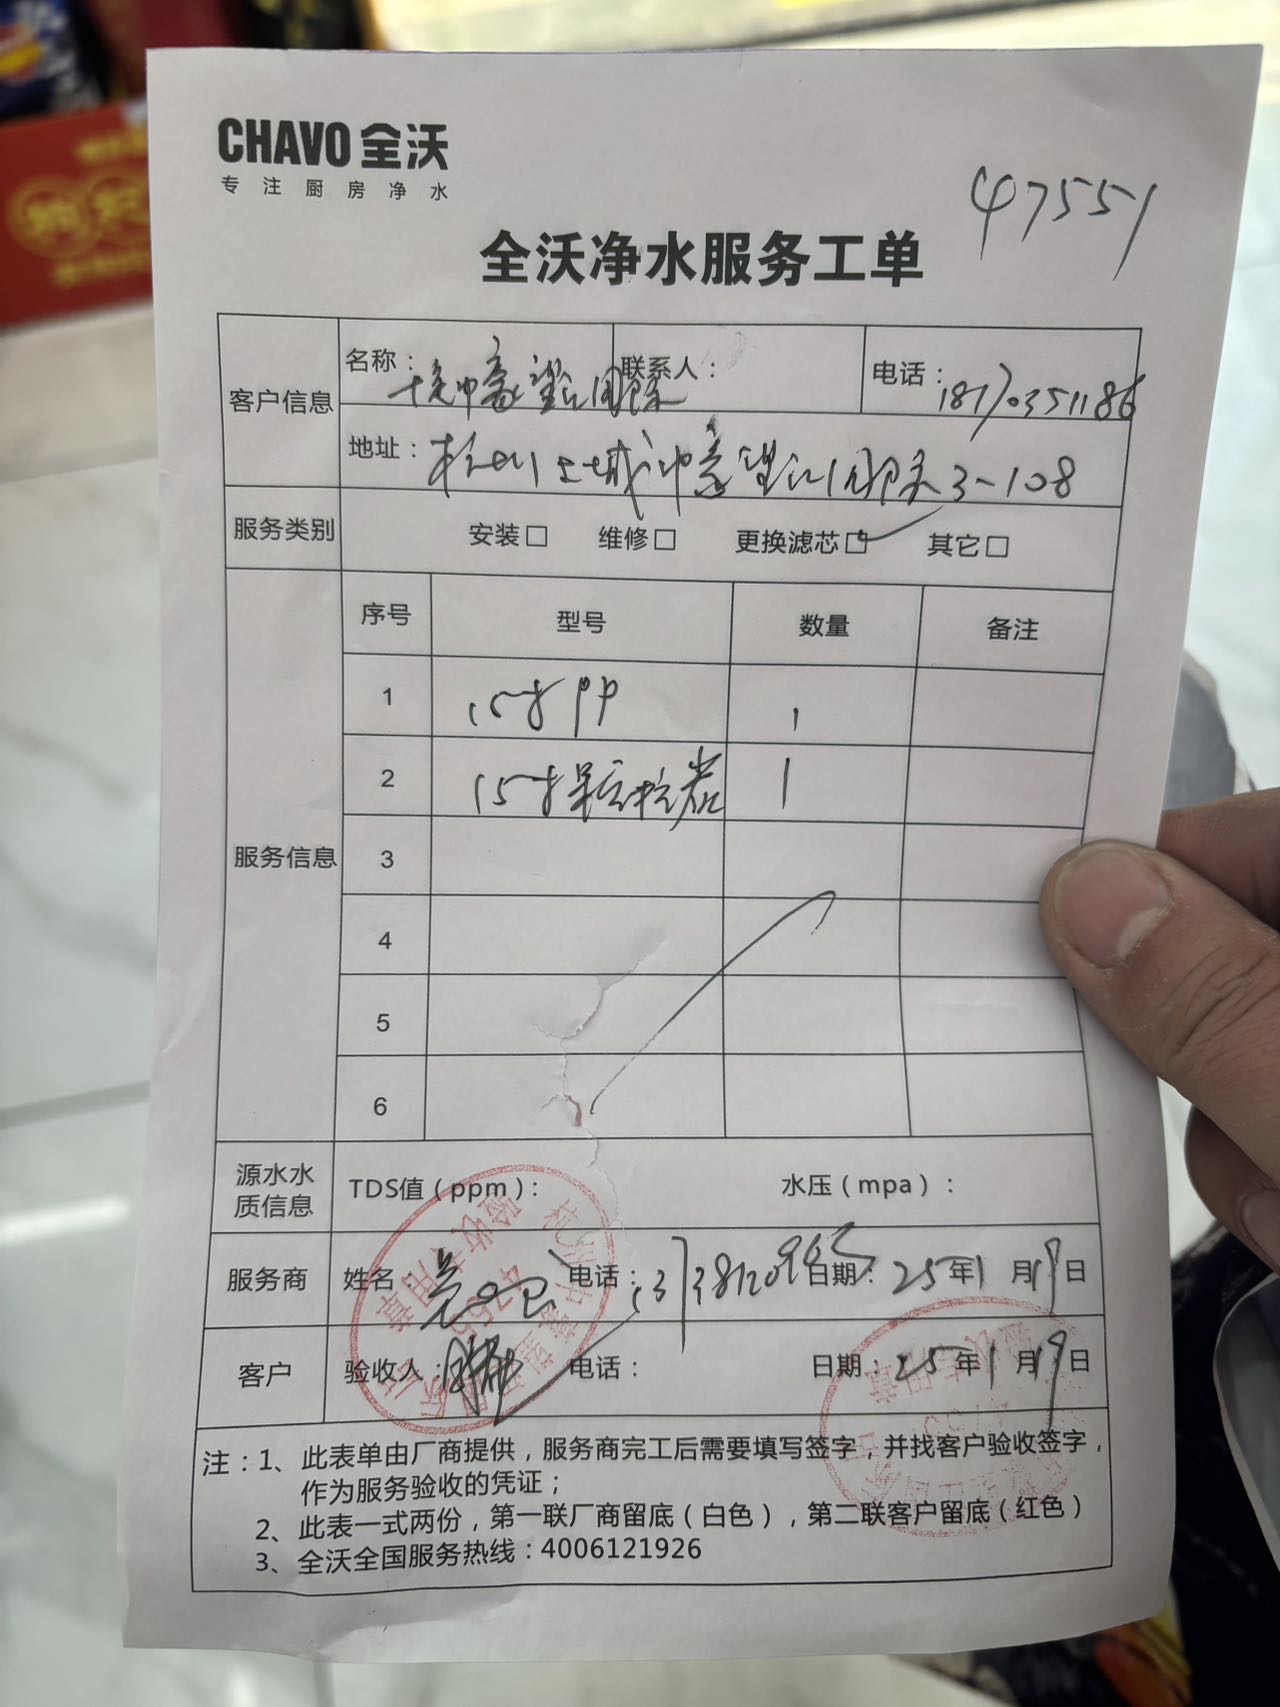 CHAVO 全沃
专注厨房净水
47551
全沃净水服务工单
客户信息
名称：
联系人：
电话：18170351186
地址：杭州上城中豪望江国际3-108
服务类别
安装□ 维修□ 更换滤芯□✓ 其它□
服务信息
序号 型号 数量 备注
1 15寸PP 1
2 15寸颗粒炭 1
3
4
5
6
源水水质信息
TDS值（ppm）： 水压（mpa）：
服务商
姓名： 电话： 日期：25年1月19日
客户
验收人： 电话： 日期：25年1月19日
注：1、此表单由厂商提供，服务商完工后需要填写签字，并找客户验收签字，
作为服务验收的凭证；
2、此表一式两份，第一联厂商留底（白色），第二联客户留底（红色）
3、全沃全国服务热线：4006121926